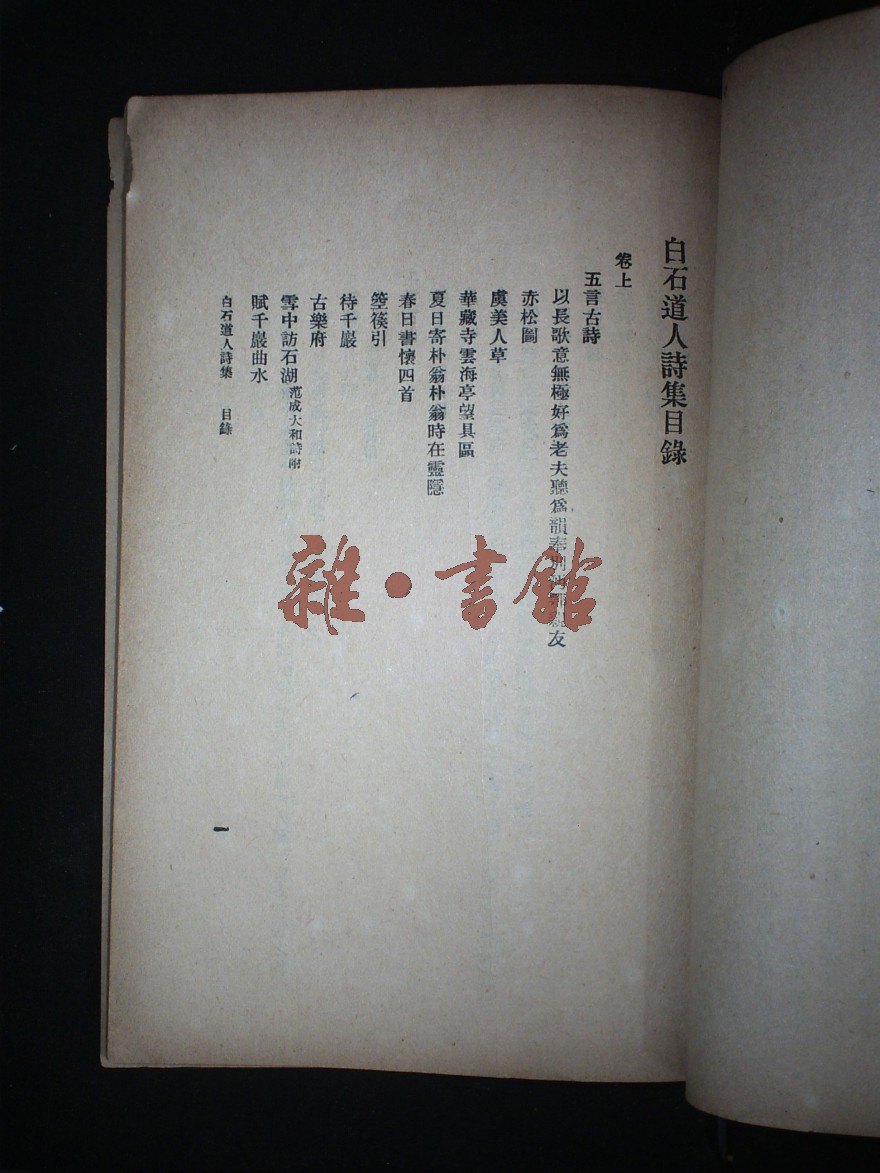 白石道人詩集目錄
卷上
五言古詩
以長歌意無極好爲老夫聽爲韻奉別沔鄂親友
赤松圖
虞美人草
華藏寺雲海亭望具區
夏日寄朴翁朴翁時在靈隱
春日書懷四首
箜篌引
待千巖
古樂府
雪中訪石湖范成大和詩附
賦千巖曲水
白石道人詩集 目錄
一
雜·書館